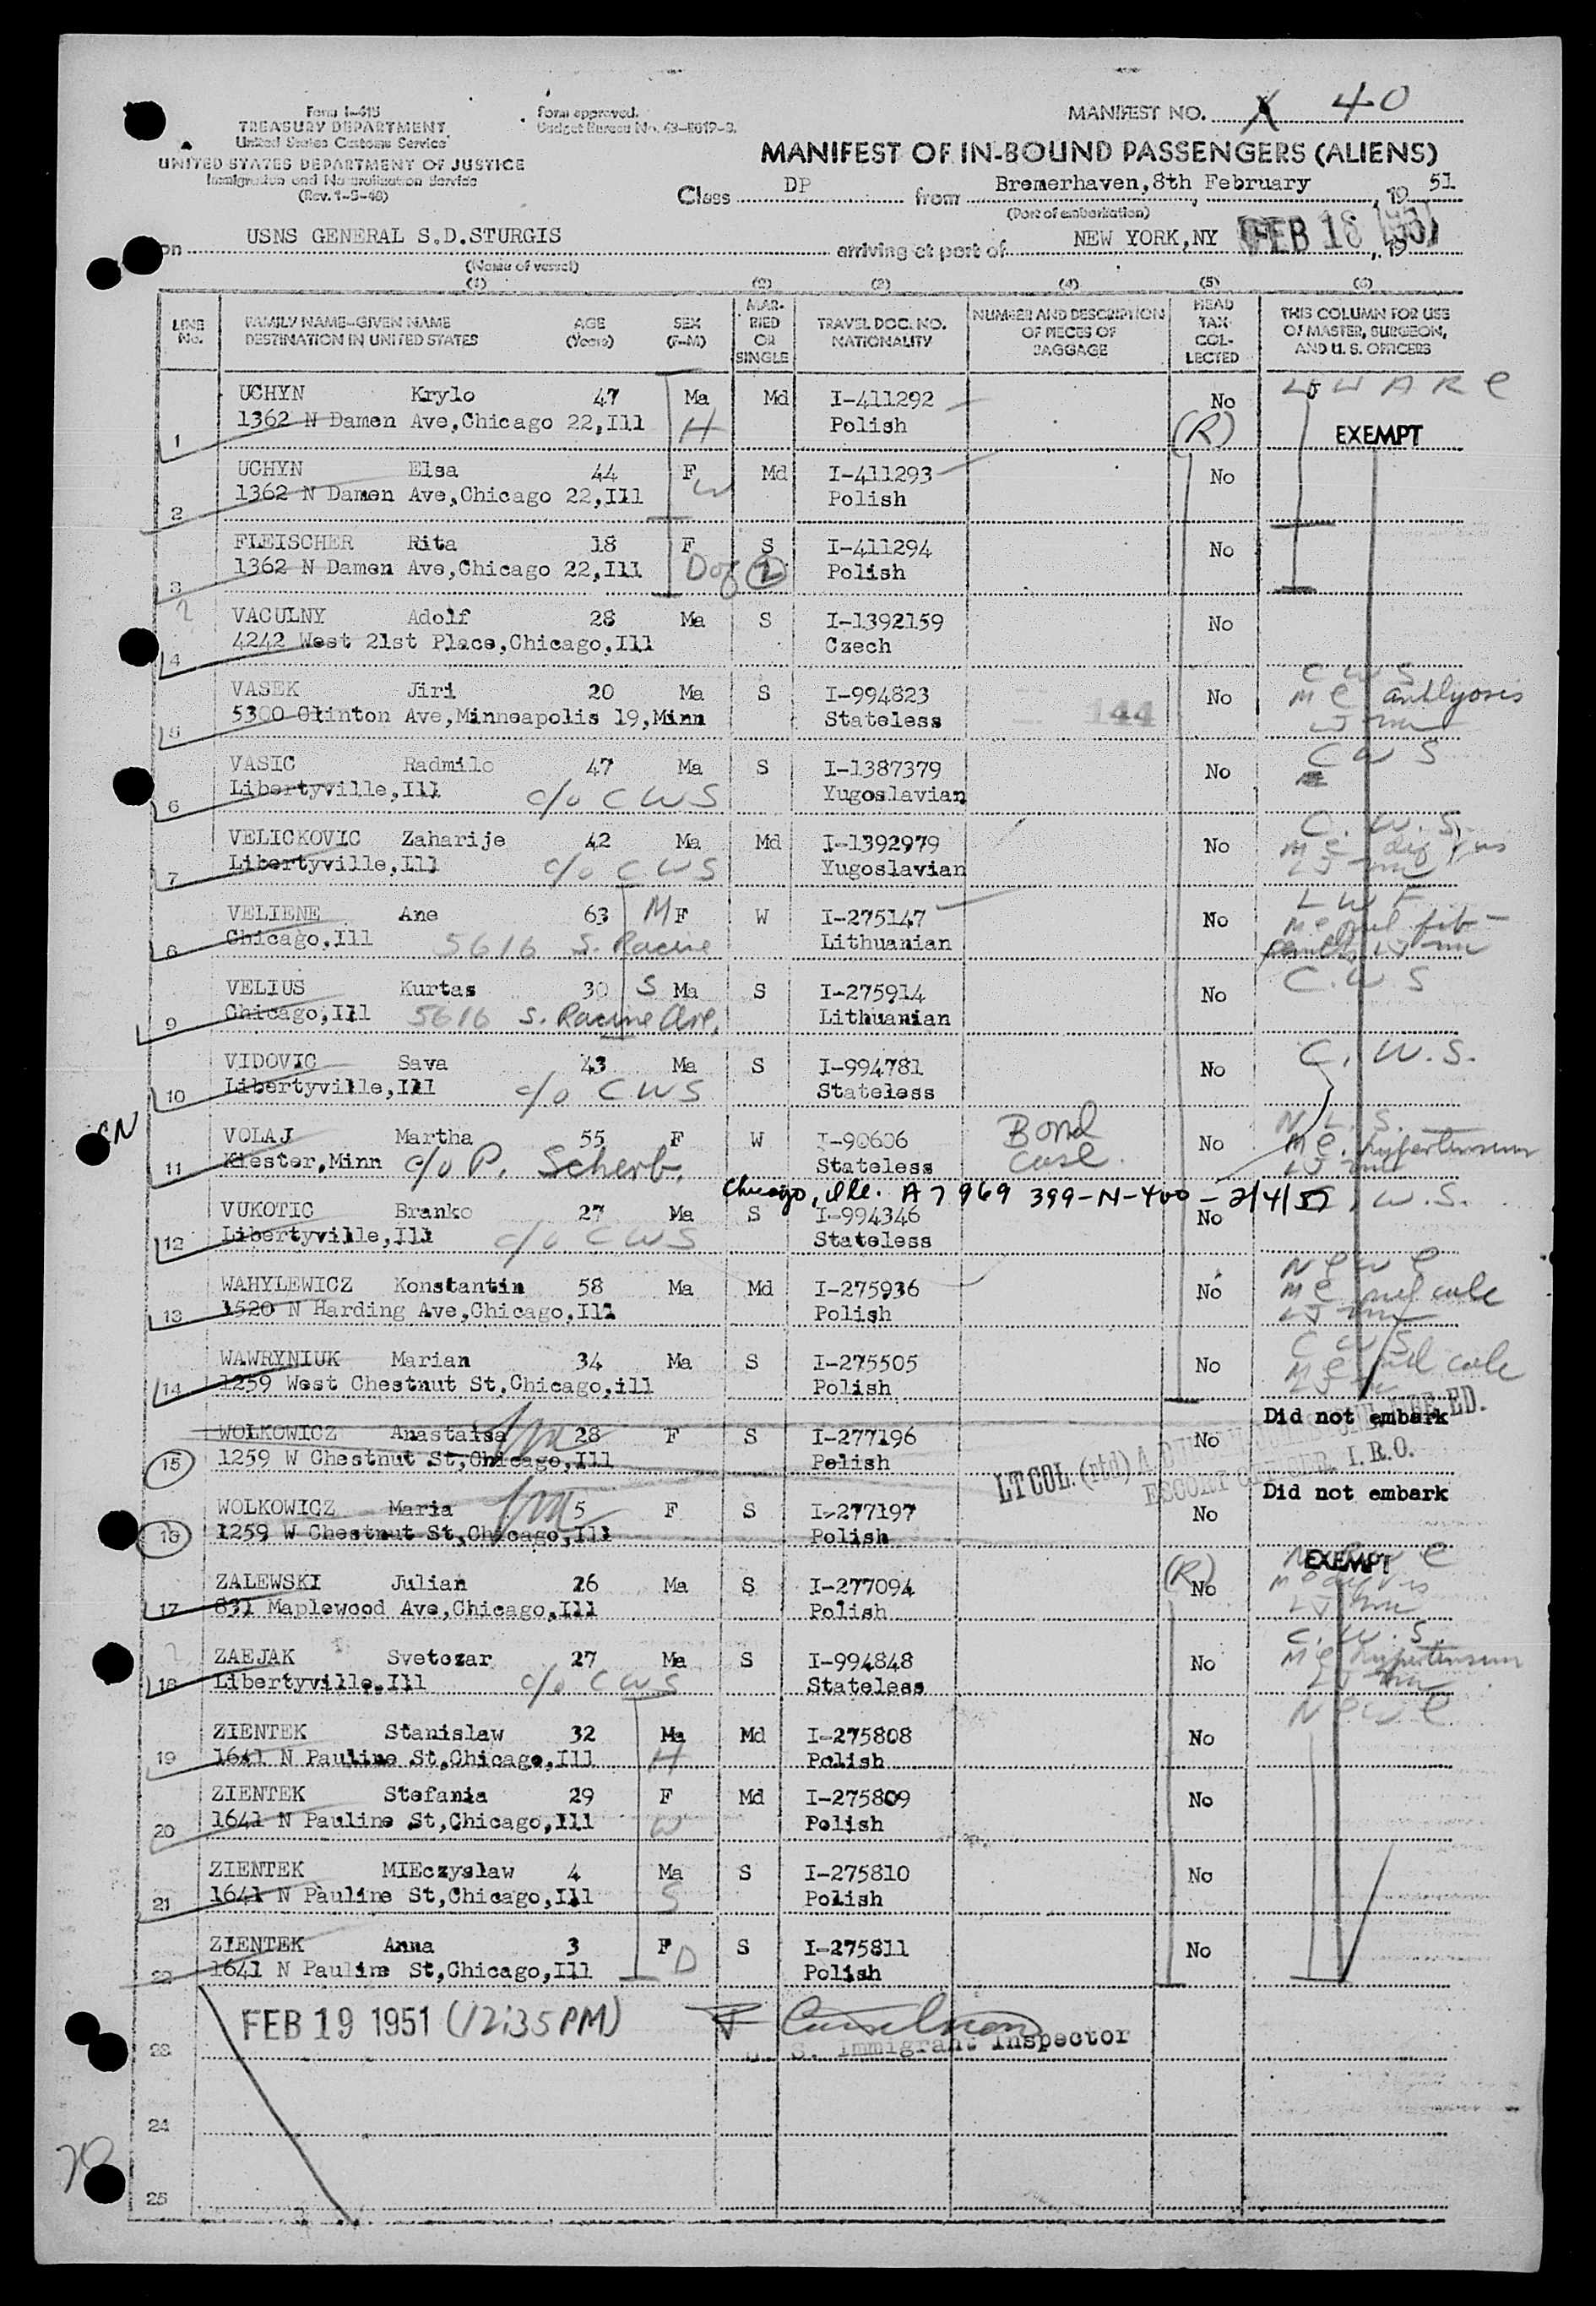 Form I-415
TREASURY DEPARTMENT
United States Customs Service
UNITED STATES DEPARTMENT OF JUSTICE
Immigration and Naturalization Service
(Rev. 1-5-48)
form approved.
Budget Bureau No. 43-R019-3.
MANIFEST NO. X 40
MANIFEST OF IN-BOUND PASSENGERS (ALIENS)
Class DP from Bremerhaven, 8th February, 19 51
(Port of embarkation)
on USNS GENERAL S.D.STURGIS arriving at port of NEW YORK,NY FEB 18 1951, 19
(Name of vessel)
(1) (2) (3) (4) (5) (6)
LINE No. FAMILY NAME-GIVEN NAME DESTINATION IN UNITED STATES AGE (Years) SEX (F-M) MAR-RIED OR SINGLE TRAVEL DOC. NO. NATIONALITY NUMBER AND DESCRIPTION OF PIECES OF BAGGAGE HEAD TAX COL-LECTED THIS COLUMN FOR USE OF MASTER, SURGEON, AND U. S. OFFICERS
UCHYN Krylo 47 Ma Md I-411292 No
1 1362 N Damen Ave,Chicago 22,Ill H Polish (R) EXEMPT
UCHYN Elsa 44 F Md I-411293 No
2 1362 N Damen Ave,Chicago 22,Ill W Polish
FLEISCHER Rita 18 F S I-411294 No
3 1362 N Damen Ave,Chicago 22,Ill 2 Polish
VACULNY Adolf 28 Ma S I-1392159 No
4 4242 West 21st Place,Chicago,Ill Czech
VASEK Jiri 20 Ma S I-994823 No CWS
5 5300 Clinton Ave,Minneapolis 19,Minn Stateless 144
VASIC Radmilo 47 Ma S I-1387379 No CWS
6 Libertyville,Ill c/o CWS Yugoslavian
VELICKOVIC Zaharije 42 Ma Md I-1392979 No C.W.S.
7 Libertyville,Ill c/o CWS Yugoslavian
VELIENE Ane 63 M F W I-275147 No LWF
8 Chicago,Ill 5616 S. Racine Lithuanian
VELIUS Kurtas 30 S Ma S I-275914 No C.W.S
9 Chicago,Ill 5616 S. Racine Ave. Lithuanian
VIDOVIC Sava 43 Ma S I-994781 No C.W.S.
10 Libertyville,Ill c/o CWS Stateless
VOLAJ Martha 55 F W I-90606 Bond case. No
11 Kiester,Minn c/o P. Scherb. Stateless hypertension
Chicago, Ill. A7 969 399-N-400-2/4/57
VUKOTIC Branko 27 Ma S I-994346 No C.W.S.
12 Libertyville,Ill c/o CWS Stateless
WAHYLEWICZ Konstantin 58 Ma Md I-275936 No
13 1520 N Harding Ave,Chicago,Ill Polish
WAWRYNIUK Marian 34 Ma S I-275505 No CWS
14 1259 West Chestnut St,Chicago,ill Polish
Did not embark
WOLKOWICZ Anastaisa 28 F S I-277196 No
15 1259 W Chestnut St,Chicago,Ill Polish
LT COL. (rtd)
ESCORT OFFICER. I.R.O.
Did not embark
WOLKOWICZ Maria 5 F S I-277197 No
16 1259 W Chestnut St,Chicago,Ill Polish
EXEMPT
ZALEWSKI Julian 26 Ma S I-277094 (R) No
17 831 Maplewood Ave,Chicago,Ill Polish
ZAEJAK Svetozar 27 Ma S I-994848 No C.W.S.
18 Libertyville,Ill c/o CWS Stateless hypertension
ZIENTEK Stanislaw 32 Ma Md I-275808 No
19 1641 N Pauline St,Chicago,Ill H Polish
ZIENTEK Stefania 29 F Md I-275809 No
20 1641 N Pauline St,Chicago,Ill W Polish
ZIENTEK MIEczyslaw 4 Ma S I-275810 No
21 1641 N Pauline St,Chicago,Ill S Polish
ZIENTEK Anna 3 F S I-275811 No
22 1641 N Pauline St,Chicago,Ill D Polish
FEB 19 1951 (12:35PM)
23 U. S. Immigrant Inspector
24
25